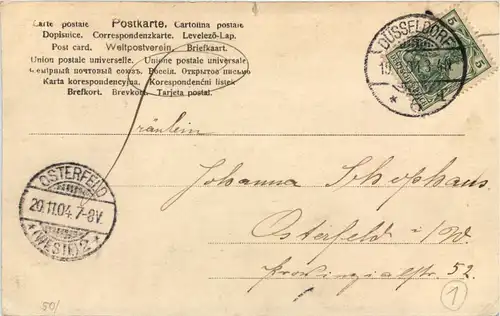 Carte postale Postkarte. Cartolina postale
Dopisnice. Correspondenzkarte. Levelező-Lap.
Post card. Weltpostverein. Briefkaart.
Union postale universelle. Unione postale universale
Всемірный почтовый союзъ. Россія. Открытое письмо
Karta korespondencyjna. Korespondenční lístek
Brefkort. Brevkort. Tarjeta postal.
DÜSSELDORF
5
5
Fräulein
Johanna Schophaus
Osterfeld i/W.
Provinzialstr. 52.
OSTERFELD
20.11.04. 7-8V
(WESTF.) 2
50/
1